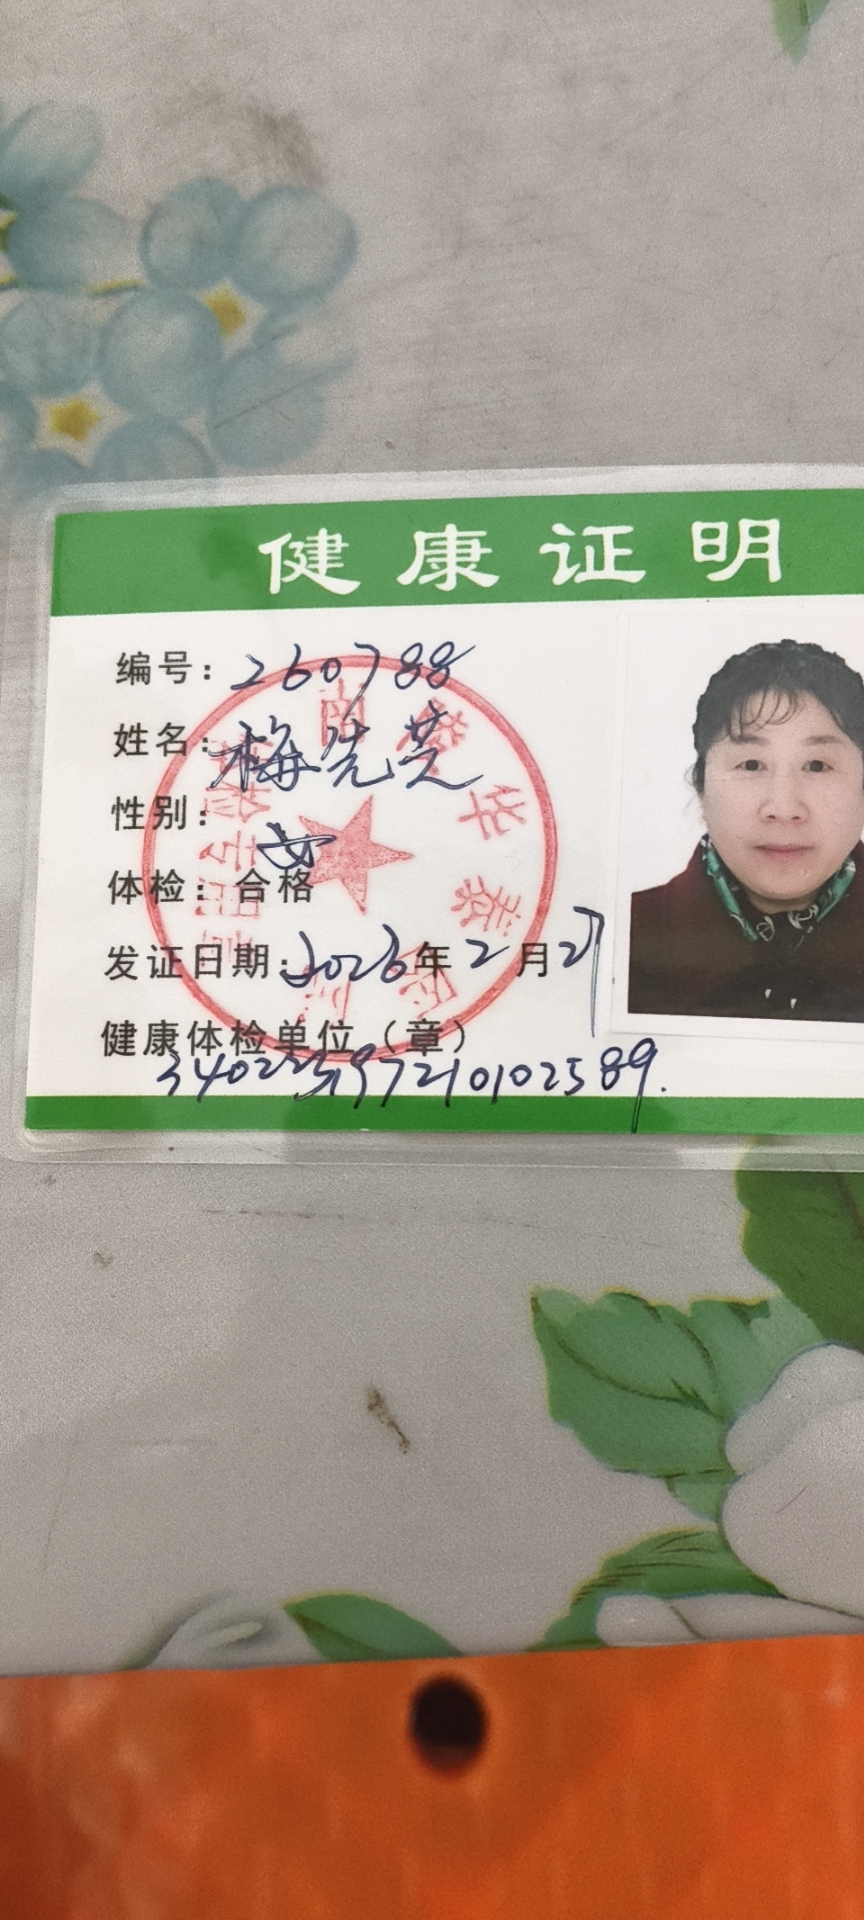 健康证明
编号：260788
姓名：梅先芝
性别：女
体检：合格
发证日期：2026年2月27
健康体检单位（章）
340223197210102589.